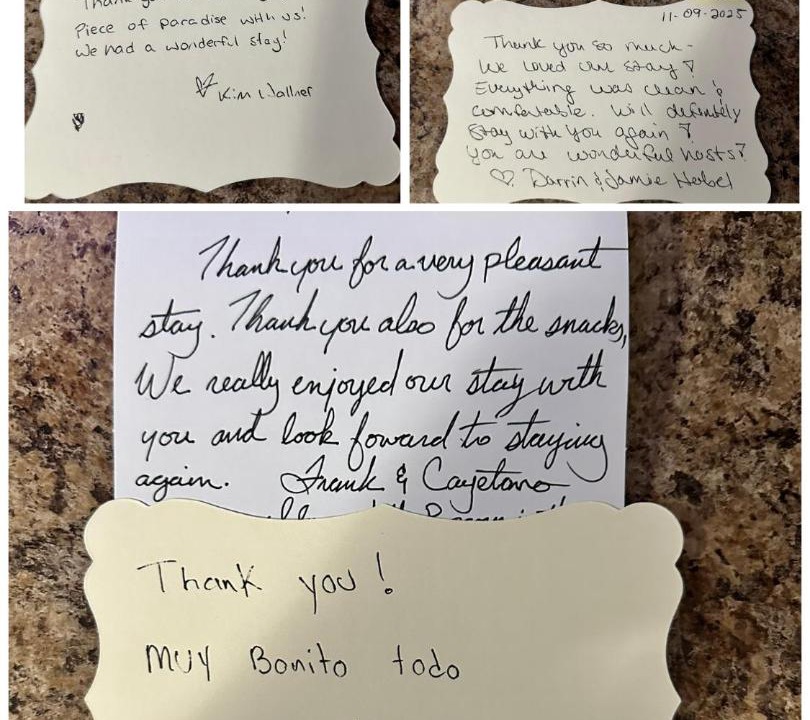 Thank yo
Piece of paradise with us!
We had a wonderful stay!
Kim Wallner
11-09-2025
Thank you so much -
We loved our stay!
Everything was clean &
comfortable. Will definitely
Stay with you again!
You are wonderful hosts!
♡ Darrin & Jamie Hebel
Thank you for a very pleasant
stay. Thank you also for the snacks,
We really enjoyed our stay with
you and look forward to staying
again. Frank & Cayetano
Thank you!
MUY Bonito todo